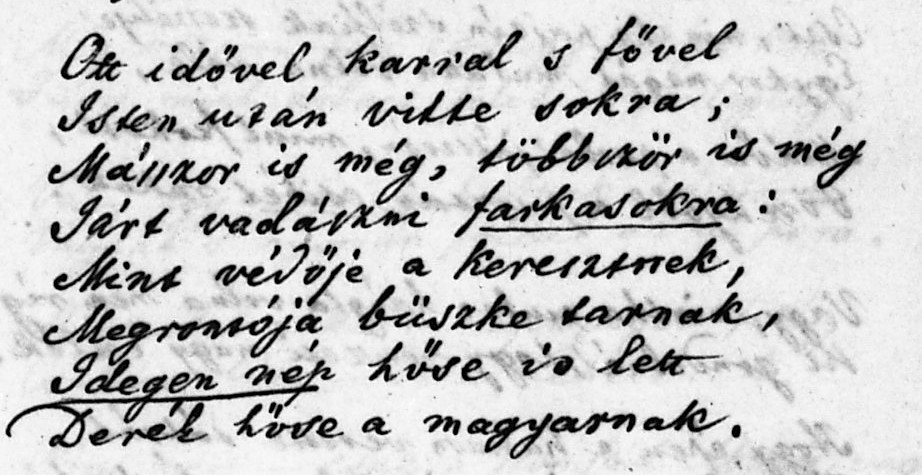 Ott idővel karral s fővel
Isten után vitte sokra;
Mászor is még, többször is még
Járt vadászni farkasokra:
Mint védője a keresztnek,
Megrontója büszke tarnak,
Idegen nép hőse is lett
Derék hőse a magyarnak.